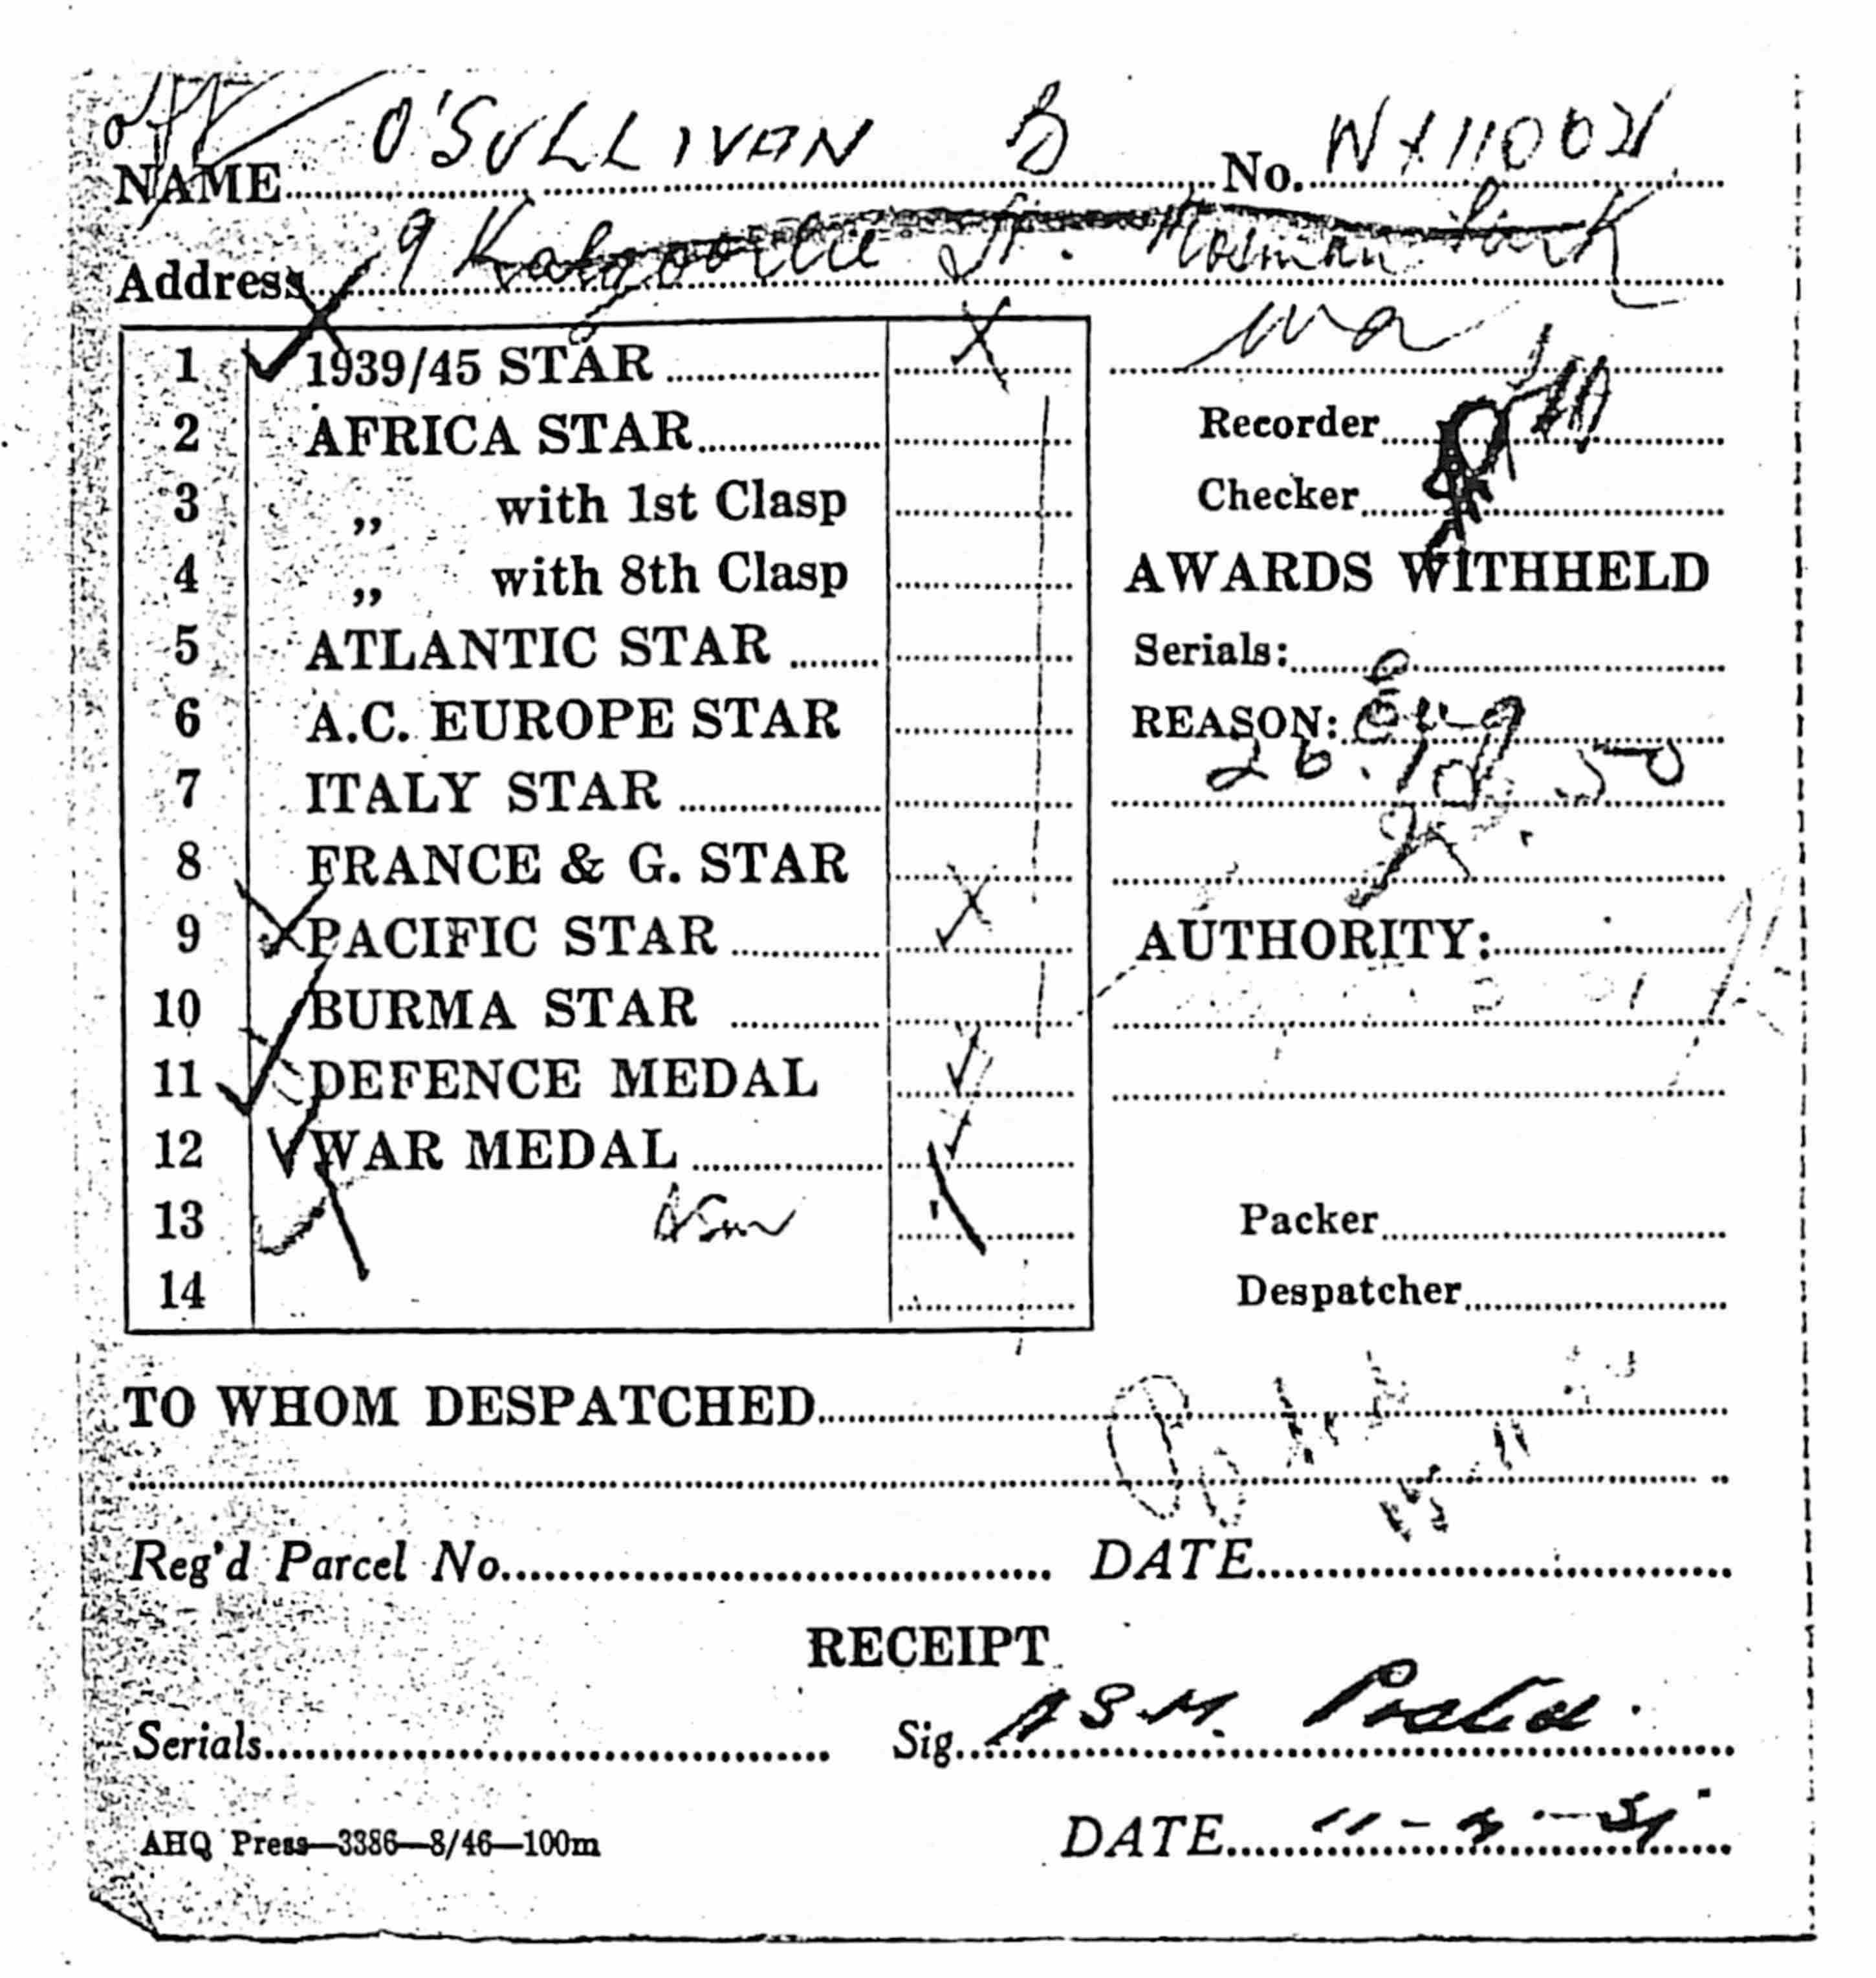 O'SULLIVAN B
NAME No. WX11002
Address 9 Kalgoorlie St. Mosman Park
WA
1 1939/45 STAR X
2 AFRICA STAR
3 „ with 1st Clasp
4 „ with 8th Clasp
5 ATLANTIC STAR
6 A.C. EUROPE STAR
7 ITALY STAR
8 FRANCE & G. STAR
9 PACIFIC STAR X
10 BURMA STAR
11 DEFENCE MEDAL ✓
12 WAR MEDAL ✓
13 ASM
14
Recorder
Checker
AWARDS WITHHELD
Serials:
REASON: Eng
26.10.50
AUTHORITY:
Packer
Despatcher
TO WHOM DESPATCHED
Reg'd Parcel No. DATE
RECEIPT
Serials Sig. ASM. Posted.
AHQ Press—3386—8/46—100m DATE